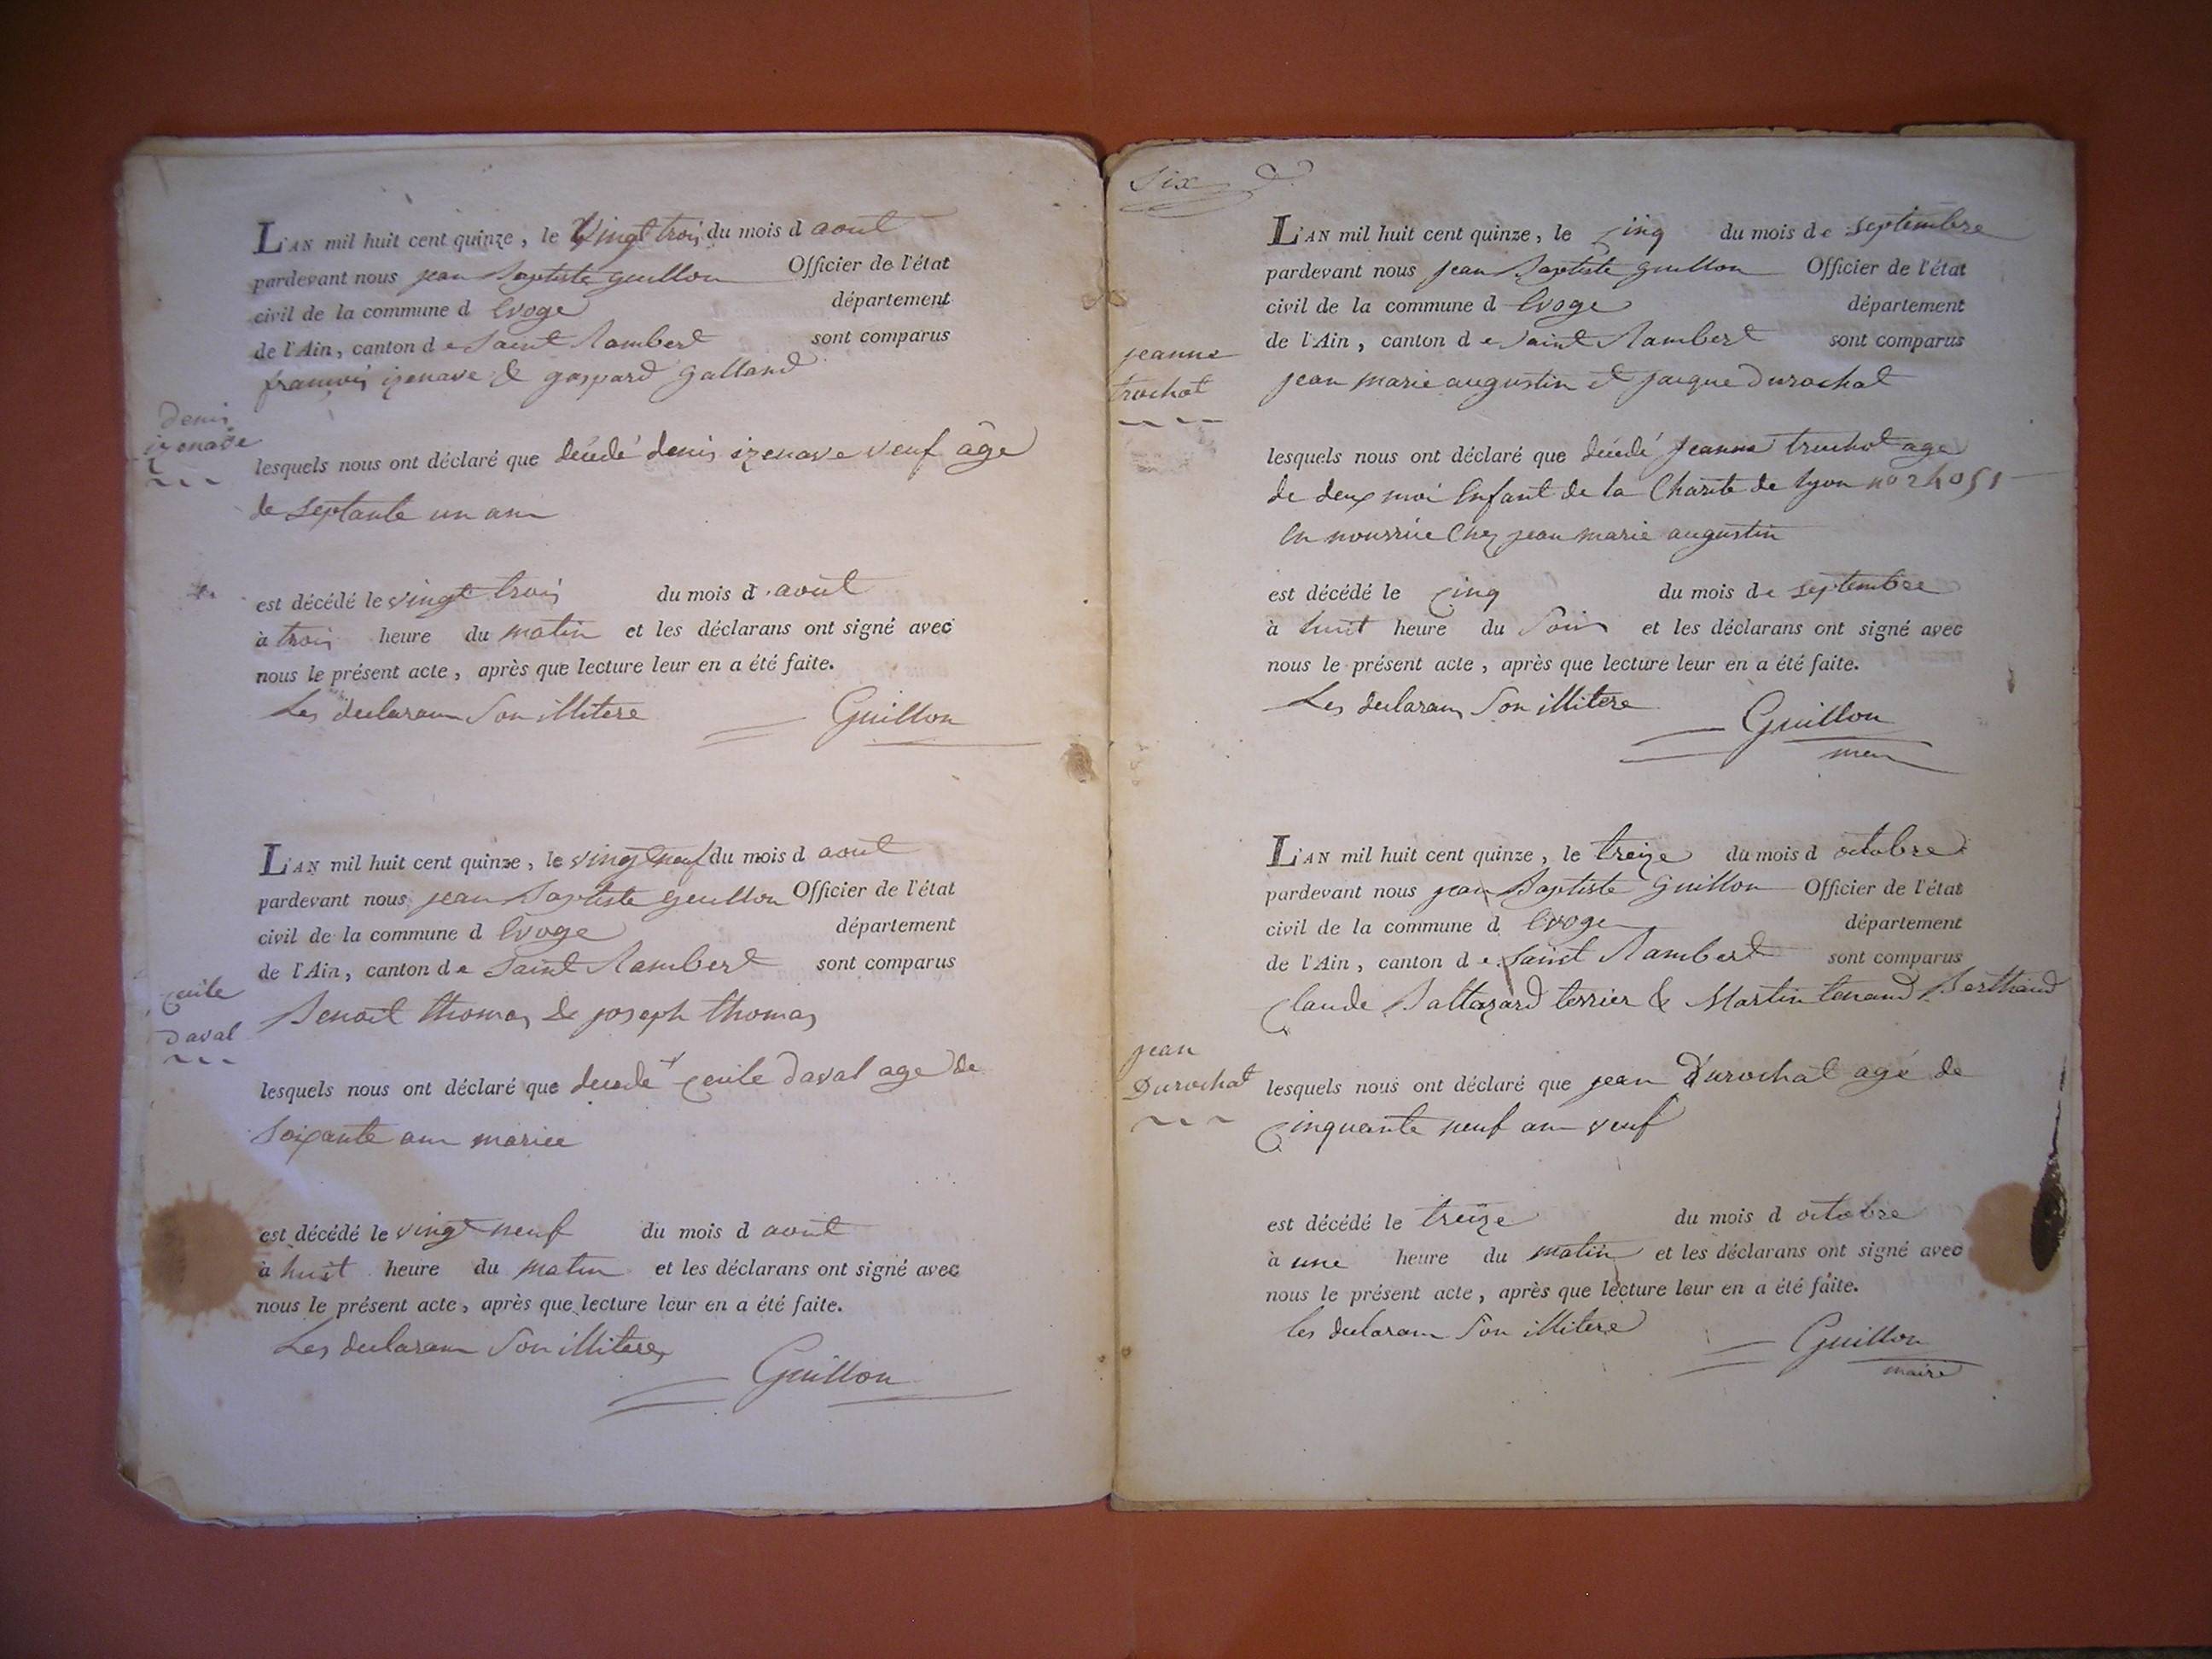 L'AN mil huit cent quinze, le vingt trois du mois d aout
pardevant nous jean Baptiste guillon Officier de l'état
civil de la commune d Evoge département
de l'Ain, canton de Saint Rambert sont comparus
francois izenave & gaspard galland
denis
izenave
lesquels nous ont déclaré que décédé denis izenave veuf âge
de septante un an
est décédé le vingt trois du mois d aout
à trois heure du matin et les déclarans ont signé avec
nous le présent acte, après que lecture leur en a été faite.
Les declaran son illitere
Guillon
L'AN mil huit cent quinze, le vingt neuf du mois d aout
pardevant nous jean Baptiste guillon Officier de l'état
civil de la commune d Evoge département
de l'Ain, canton de Saint Rambert sont comparus
Benoit thomas & joseph thomas
cecile
daval
lesquels nous ont déclaré que decede cecile daval age de
soixante an mariee
est décédé le vingt neuf du mois d aout
à huit heure du matin et les déclarans ont signé avec
nous le présent acte, après que lecture leur en a été faite.
Les declaran son illitere
Guillon
Six
L'AN mil huit cent quinze, le cinq du mois de septembre
pardevant nous jean Baptiste guillon Officier de l'état
civil de la commune d Evoge département
de l'Ain, canton de Saint Rambert sont comparus
jean marie augustin et jacque Durochat
jeanne
trochat
lesquels nous ont déclaré que décédé jeanne truchot age
de deux moi Enfant de la Charite de lyon no 24051
En nourrice Chez jean marie augustin
est décédé le cinq du mois de septembre
à huit heure du soir et les déclarans ont signé avec
nous le présent acte, après que lecture leur en a été faite.
Les declaran son illitere
Guillon
L'AN mil huit cent quinze, le treize du mois d octobre
pardevant nous jean Baptiste Guillon Officier de l'état
civil de la commune d Evoge département
de l'Ain, canton de Saint Rambert sont comparus
Claude Baltazard terrier & Martin tenand Berthand
jean
Durochat
lesquels nous ont déclaré que jean Durochat agé de
cinquante neuf an veuf
est décédé le treize du mois d octobre
à une heure du matin et les déclarans ont signé avec
nous le présent acte, après que lecture leur en a été faite.
les declaran son illitere
Guillon
maire